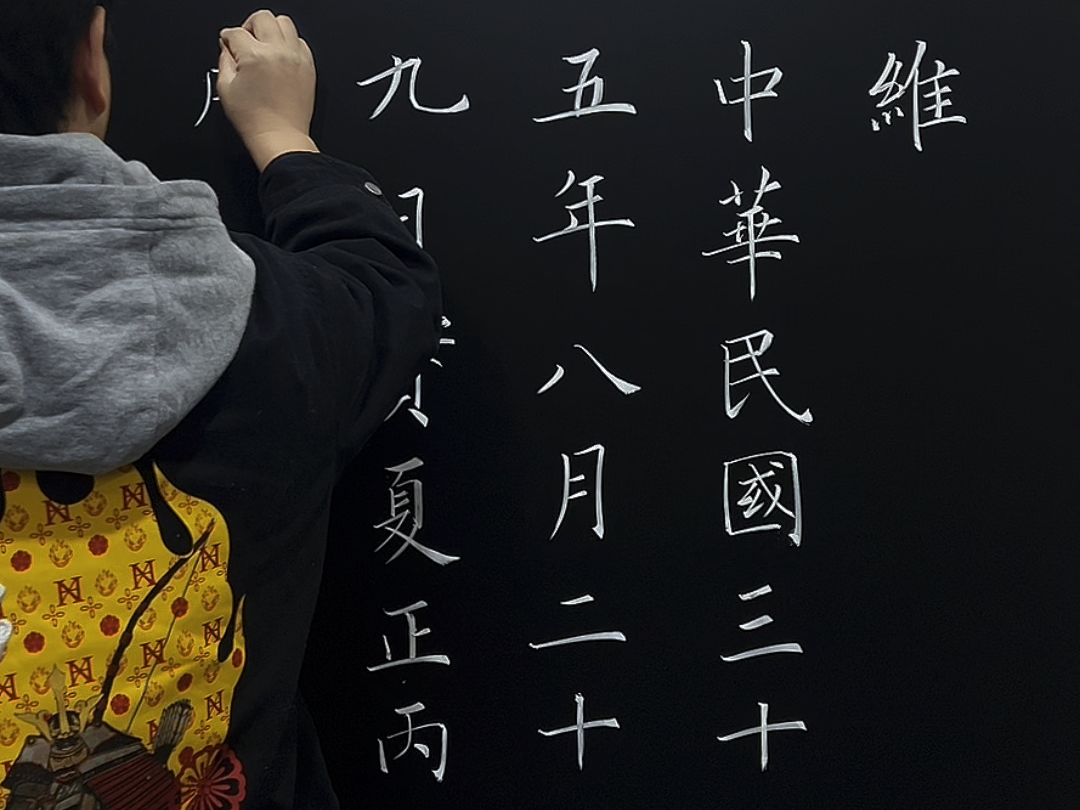 維
中華民國三十
五年八月二十
九夏正丙